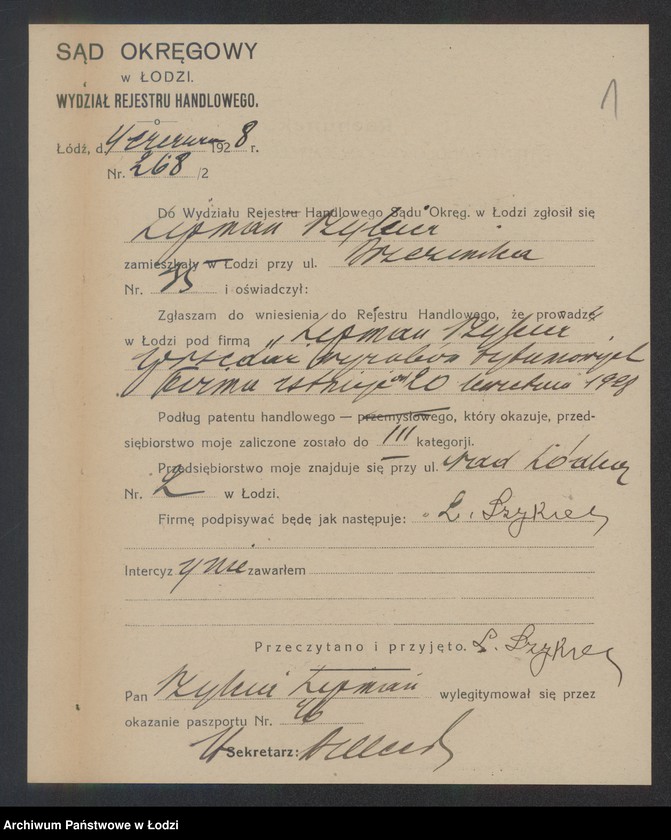 SĄD OKRĘGOWY
w ŁODZI.
WYDZIAŁ REJESTRU HANDLOWEGO.
1
Łódź, d. 4 czerwca 1928 r.
Nr. 268 /2
Do Wydziału Rejestru Handlowego Sądu Okręg. w Łodzi zgłosił się
Lipman Szykier
zamieszkały w Łodzi przy ul. Brzezińska
Nr. 35 i oświadczył:
Zgłaszam do wniesienia do Rejestru Handlowego, że prowadzę
w Łodzi pod firmą „Lipman Szykier"
sprzedaż wyrobów
Firma istnieje od 20 kwietnia 1928
Podług patentu handlowego — przemysłowego, który okazuje, przed-
siębiorstwo moje zaliczone zostało do III kategorji.
Przedsiębiorstwo moje znajduje się przy ul. Nad Łódką
Nr. 2 w Łodzi.
Firmę podpisywać będę jak następuje: L. Szykier
Intercyzy nie zawarłem
Przeczytano i przyjęto. L. Szykier
Pan Szykier Lipman wylegitymował się przez
okazanie paszportu Nr. 46
Sekretarz:
Archiwum Państwowe w Łodzi